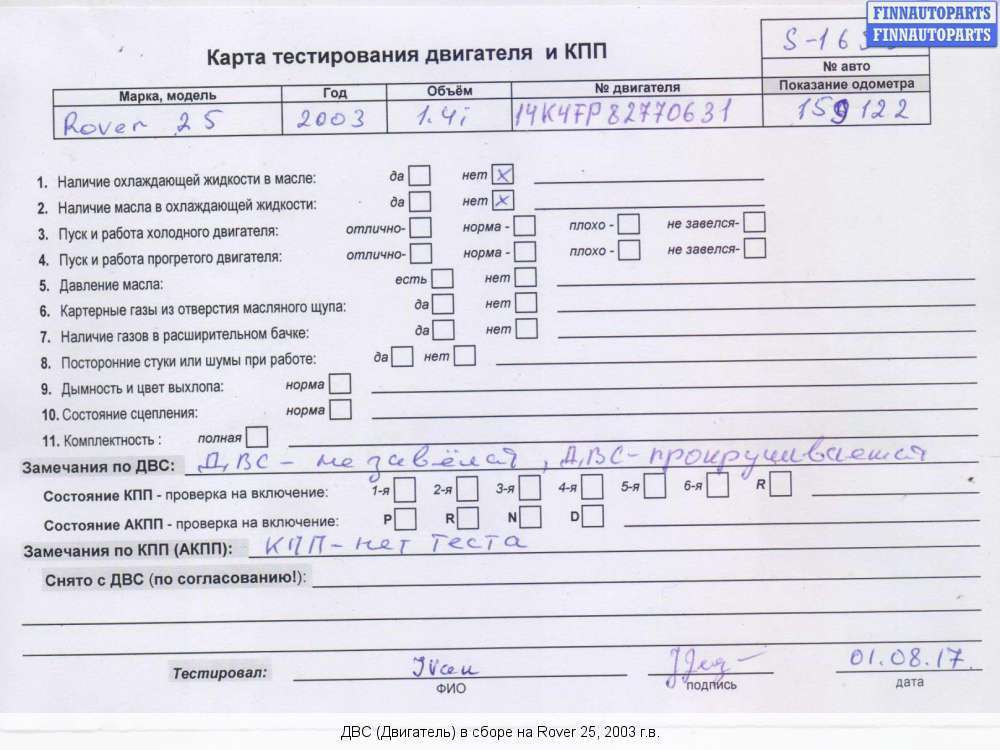 FINNAUTOPARTS
FINNAUTOPARTS
Карта тестирования двигателя и КПП
№ авто
Марка, модель Год Объём № двигателя Показание одометра
Rover 25 2003 1.4i 14K4FP82770631 159122
1. Наличие охлаждающей жидкости в масле: да нет x
2. Наличие масла в охлаждающей жидкости: да нет x
3. Пуск и работа холодного двигателя: отлично- норма - плохо - не завелся-
4. Пуск и работа прогретого двигателя: отлично- норма - плохо - не завелся-
5. Давление масла: есть нет
6. Картерные газы из отверстия масляного щупа: да нет
7. Наличие газов в расширительном бачке: да нет
8. Посторонние стуки или шумы при работе: да нет
9. Дымность и цвет выхлопа: норма
10. Состояние сцепления: норма
11. Комплектность : полная
Замечания по ДВС: ДВС - не завёлся, ДВС-прокручивается
Состояние КПП - проверка на включение: 1-я 2-я 3-я 4-я 5-я 6-я R
Состояние АКПП - проверка на включение: P R N D
Замечания по КПП (АКПП): КПП-нет теста
Снято с ДВС (по согласованию!):
Тестировал: Ivan 01.08.17.
ФИО подпись дата
ДВС (Двигатель) в сборе на Rover 25, 2003 г.в.